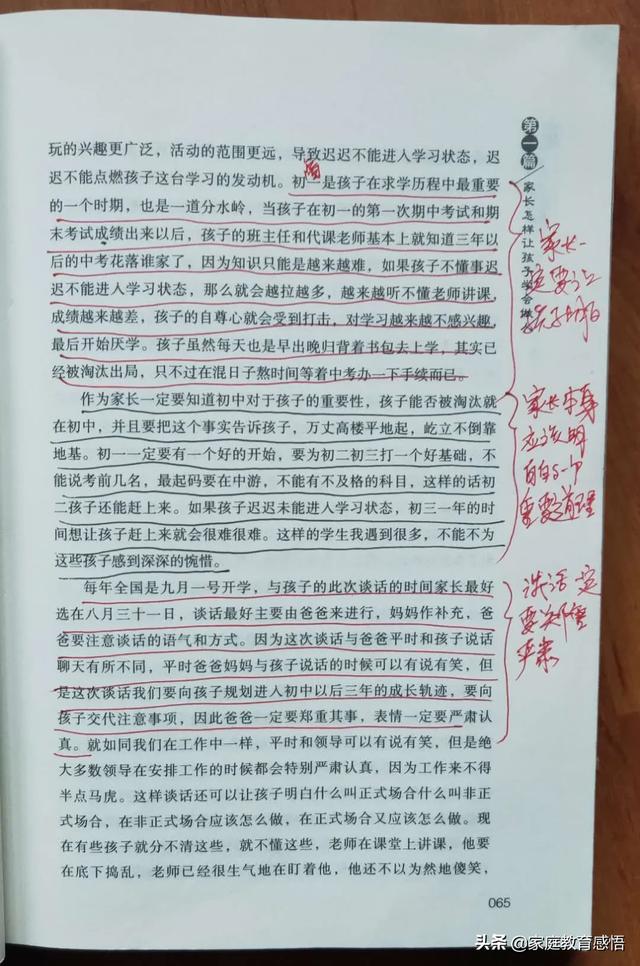 玩的兴趣更广泛，活动的范围更远，导致迟迟不能进入学习状态，迟
迟不能点燃孩子这台学习的发动机。初一是孩子在求学历程中最重要
的一个时期，也是一道分水岭，当孩子在初一的第一次期中考试和期
末考试成绩出来以后，孩子的班主任和代课老师基本上就知道三年以
后的中考花落谁家了，因为知识只能是越来越难，如果孩子不懂事迟
迟不能进入学习状态，那么就会越拉越多，越来越听不懂老师讲课，
成绩越来越差，孩子的自尊心就会受到打击，对学习越来越不感兴趣，
最后开始厌学。孩子虽然每天也是早出晚归背着书包去上学，其实已
经被淘汰出局，只不过在混日子熬时间等着中考办一下手续而已。
作为家长一定要知道初中对于孩子的重要性，孩子能否被淘汰就
在初中，并且要把这个事实告诉孩子，万丈高楼平地起，屹立不倒靠
地基。初一一定要有一个好的开始，要为初二初三打一个好基础，不
能说考前几名，最起码要在中游，不能有不及格的科目，这样的话初
二孩子还能赶上来。如果孩子迟迟未能进入学习状态，初三一年的时
间想让孩子赶上来就会很难很难。这样的学生我遇到很多，不能不为
这些孩子感到深深的惋惜。
每年全国是九月一号开学，与孩子的此次谈话的时间家长最好
选在八月三十一日，谈话最好主要由爸爸来进行，妈妈作补充，爸
爸要注意谈话的语气和方式。因为这次谈话与爸爸平时和孩子说话
聊天有所不同，平时爸爸妈妈与孩子说话的时候可以有说有笑，但
是这次谈话我们要向孩子规划进入初中以后三年的成长轨迹，要向
孩子交代注意事项，因此爸爸一定要郑重其事，表情一定要严肃认
真。就如同我们在工作中一样，平时和领导可以有说有笑，但是绝
大多数领导在安排工作的时候都会特别严肃认真，因为工作来不得
半点马虎。这样谈话还可以让孩子明白什么叫正式场合什么叫非正
式场合，在非正式场合应该怎么做，在正式场合又应该怎么做。现
在有些孩子就分不清这些，就不懂这些，老师在课堂上讲课，他要
在底下捣乱，老师已经很生气地在盯着他，他还不以为然地傻笑，
第一篇
家长怎样让孩子学会
家长一
定要让
孩子明白
家长本身
应该明
白
重要
谈话一定
要郑重
严肃
065
头条 @家庭教育感悟